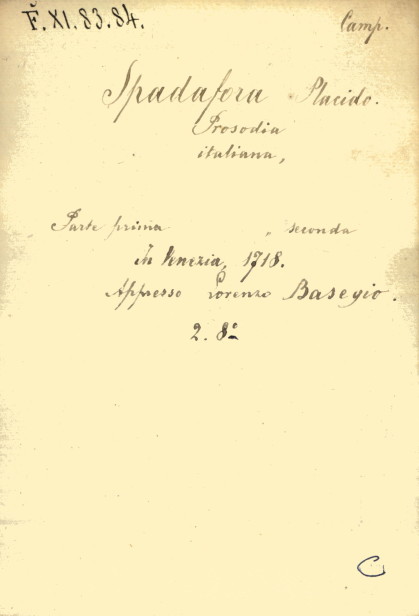 F̌. XI. 83. 84. Camp.
Spadafora Placido.
Prosodia
italiana,
Parte prima „ seconda
In Venezia, 1718.
Appresso Lorenzo Basegio.
2. 8º
C